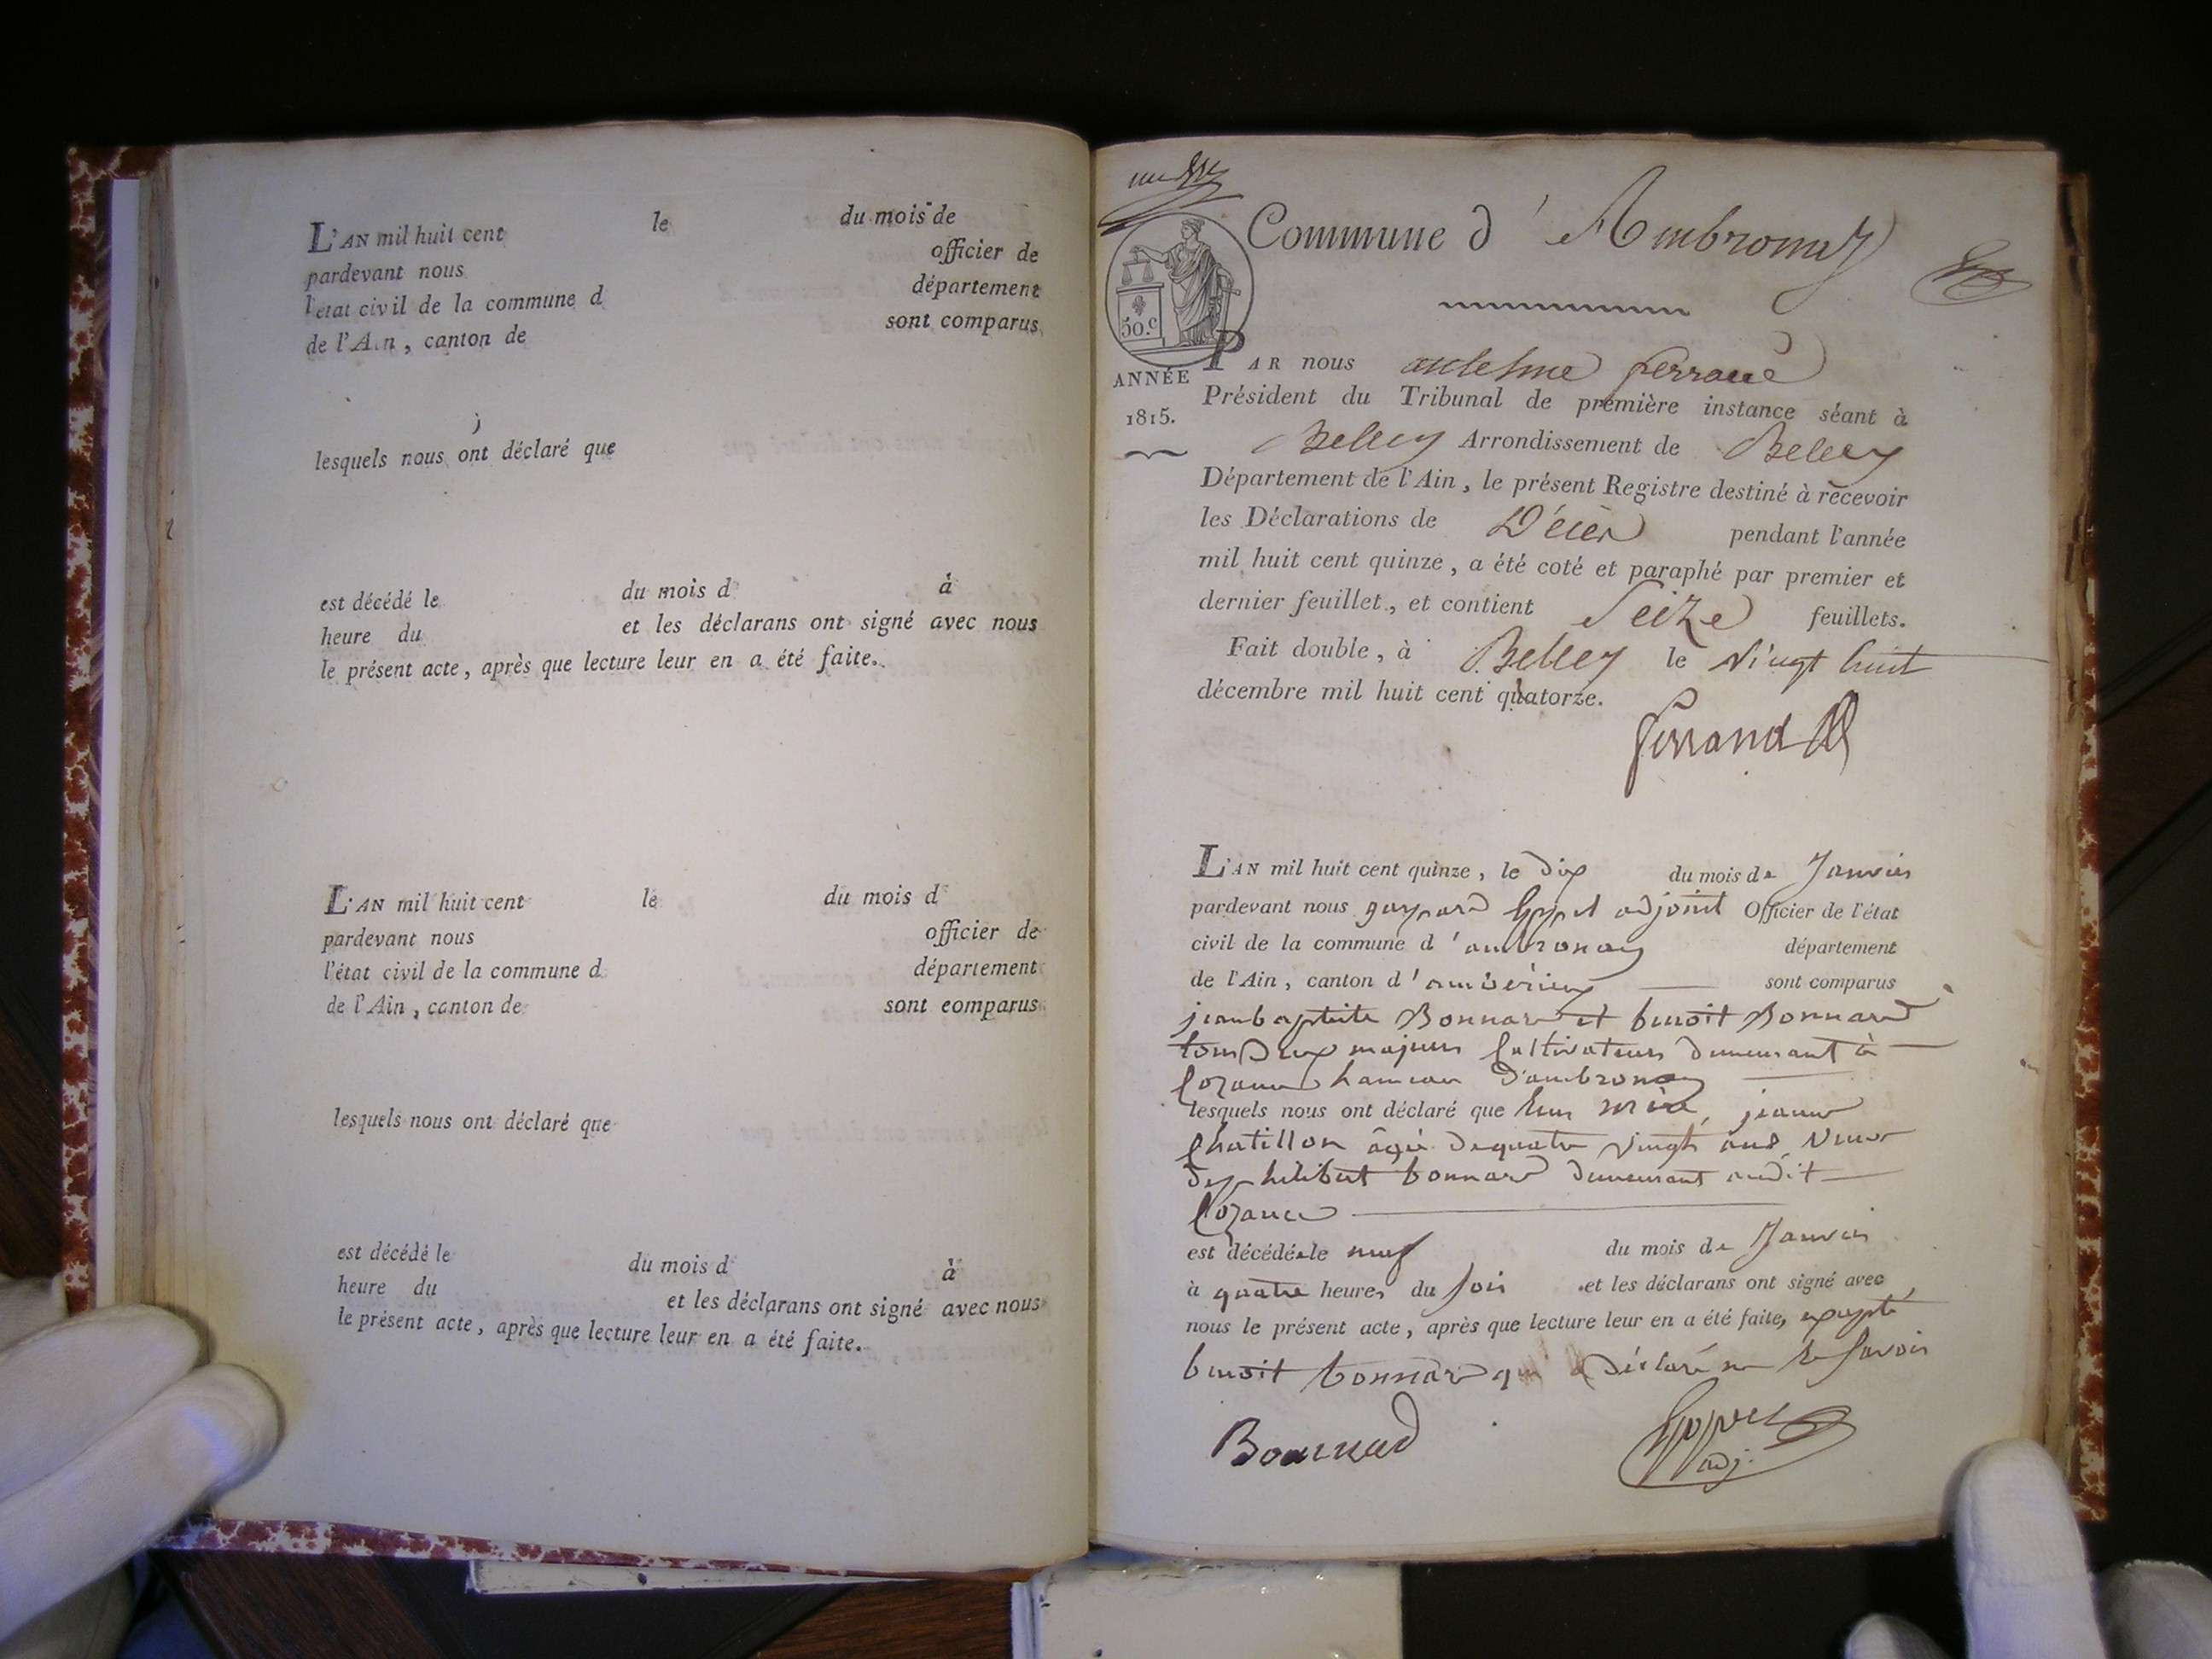 L'AN mil huit cent le du mois de
pardevant nous officier de
l'état civil de la commune d département
de l'Ain, canton de sont comparus
lesquels nous ont déclaré que
est décédé le du mois d à
heure du et les déclarans ont signé avec nous
le présent acte, après que lecture leur en a été faite.
L'AN mil huit cent le du mois d
pardevant nous officier de
l'état civil de la commune d département
de l'Ain, canton de sont comparus
lesquels nous ont déclaré que
est décédé le du mois d à
heure du et les déclarans ont signé avec nous
le présent acte, après que lecture leur en a été faite.
Commune d'Ambronay
50.c
ANNÉE
1815.
PAR nous antelme ferrand
Président du Tribunal de première instance séant à
Belley Arrondissement de Belley
Département de l'Ain, le présent Registre destiné à recevoir
les Déclarations de Décès pendant l'année
mil huit cent quinze, a été coté et paraphé par premier et
dernier feuillet, et contient Seize feuillets.
Fait double, à Belley le vingt huit
décembre mil huit cent quatorze.
ferrand
L'AN mil huit cent quinze, le dix du mois de Janvier
pardevant nous gaspard adjoint Officier de l'état
civil de la commune d'ambronay département
de l'Ain, canton d'ambérieux sont comparus
jean baptiste Bonnard et benoit Bonnard
tous deux majeurs Cultivateurs demeurant à
hameau d'ambronay
lesquels nous ont déclaré que leur mère, jeanne
Chatillon âgée de quatre vingts ans veuve
de philibert bonnard demeurant audit
est décédée le neuf du mois de Janvier
à quatre heures du soir et les déclarans ont signé avec
nous le présent acte, après que lecture leur en a été faite, excepté
benoit bonnard qui a déclaré ne le savoir
Bonnard
adj.